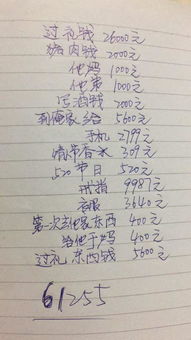 过礼钱 26000元
猪肉钱 2000元
他妈 1000元
他弟 1000元
烟酒钱 2000元
到俺家给 5600元
手机 2799元
情节香水 309元
520节日 520元
戒指 9987元
衣服 3640元
第一次去他家东西 400元
给他干妈 400元
过礼东西钱 5600元
61255